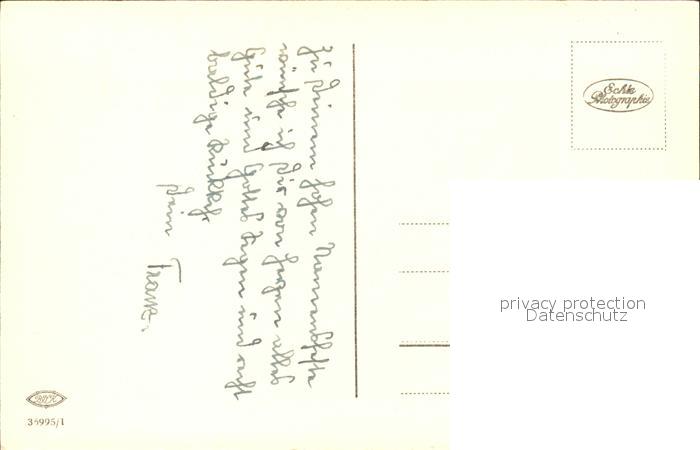 Zu Deinem hohen Namensfeste
wünsche ich Dir von Herzen alles
Gute und Gottes Segen und recht
baldige Rückkehr.
Dein Franz.
Echte
Photographie
privacy protection
Datenschutz
35995/1